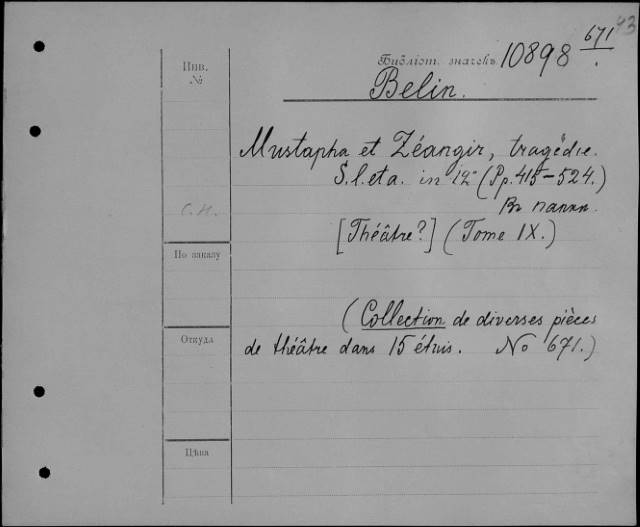 671 43
Библіот. значекъ 10898
Инв.
№
Belin.
Mustapha et Zéangir, tragédie.
S.l.et a. in 12° (Pp. 415-524.)
Въ папкѣ.
С.Н.
[Théâtre?] (Tome IX.)
По заказу
(Collection de diverses pièces
Откуда
de théâtre dans 15 étuis. No 671.)
Цѣна